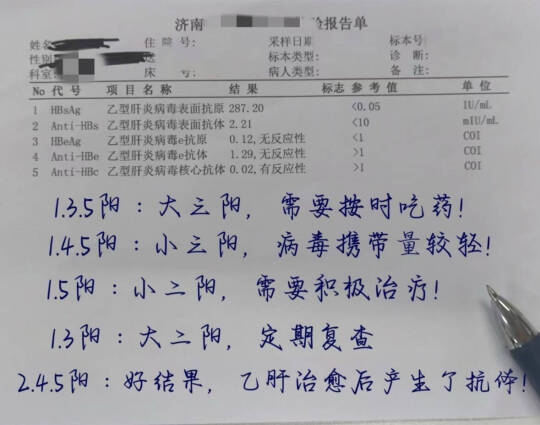 济南 验报告单
姓名 住院号: 采样日期 标本号
性别 标本类型: 诊断:
科室: 床号: 病人类型: 备注:
No 代号 项目名称 结果 标志 参考值 单位
1 HBsAg 乙型肝炎病毒表面抗原 287.20 <0.05 IU/mL
2 Anti-HBs 乙型肝炎病毒表面抗体 2.21 <10 mIU/mL
3 HBeAg 乙型肝炎病毒e抗原 0.12,无反应性 <1 COI
4 Anti-HBe 乙型肝炎病毒e抗体 1.29,无反应性 >1 COI
5 Anti-HBc 乙型肝炎病毒核心抗体 0.02,有反应性 >1 COI
1.3.5阳:大三阳,需要按时吃药!
1.4.5阳:小三阳,病毒携带量较轻!
1.5阳:小二阳,需要积极治疗!
1.3阳:大二阳,定期复查
2.4.5阳:好结果,乙肝治愈后产生了抗体!